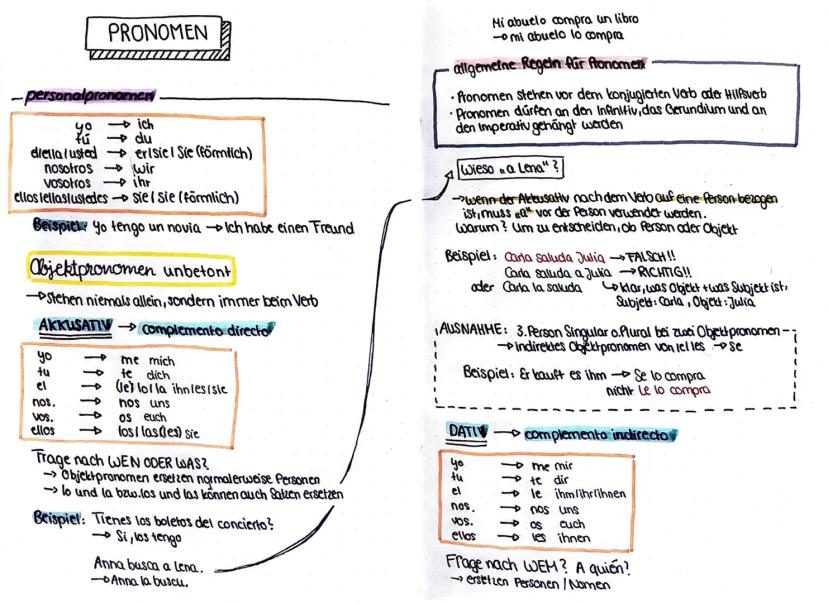 PRONOMEN
personalpronomen
yo → ich
tú → du
él/ella/usted → er/sie/Sie (förmlich)
nosotros → wir
vosotros → ihr
ellos/ellas/ustedes → sie/Sie (förmlich)
Beispiel: Yo tengo un novia → Ich habe einen Freund
Objektpronomen unbetont
→ Stehen niemals allein, sondern immer beim Verb
AKKUSATIV → complemento directo
yo → me mich
tu → te dich
el → (le) lo/la ihn/es/sie
nos. → nos uns
vos. → os euch
ellos → los/las(les) sie
Frage nach WEN ODER WAS?
→ Objektpronomen ersetzen normalerweise Personen
→ lo und la bzw. los und las können auch Sätze ersetzen
Beispiel: Tienes los boletos del concierto?
→ Si, los tengo
Anna busca a Lena.
→ Anna la buscu.
Mi abuelo compra un libro
→ mi abuelo lo compra
allgemeine Regeln für Pronomen
· Pronomen stehen vor dem konjugierten Verb oder Hilfsverb
· Pronomen dürfen an den Infinitiv, das Gerundium und an
den Imperativ gehängt werden
Wieso „a Lena"?
→ wenn der Akkusativ nach dem Verb auf eine Person bezogen
ist, muss „a" vor der Person verwendet werden.
Warum? Um zu entscheiden, ob Person oder Objekt
Beispiel: Carla saluda Julia → FALSCH!!
Carla saluda a Julia → RICHTIG!!
oder Carla la saluda ↳ klar, was Objekt + was Subjekt ist:
Subjekt: Carla, Objekt: Julia
AUSNAHME: 3. Person Singular o. Plural bei zwei Objektpronomen
→ indirektes Objektpronomen von le/les → se
Beispiel: Er kauft es ihm → Se lo compra
nicht Le lo compra
DATIV → complemento indirecto
yo → me mir
tu → te dir
el → le ihm/ihr/ihnen
nos. → nos uns
vos. → os euch
ellos → les ihnen
Frage nach WEM? A quién?
→ ersetzen Personen/Nomen